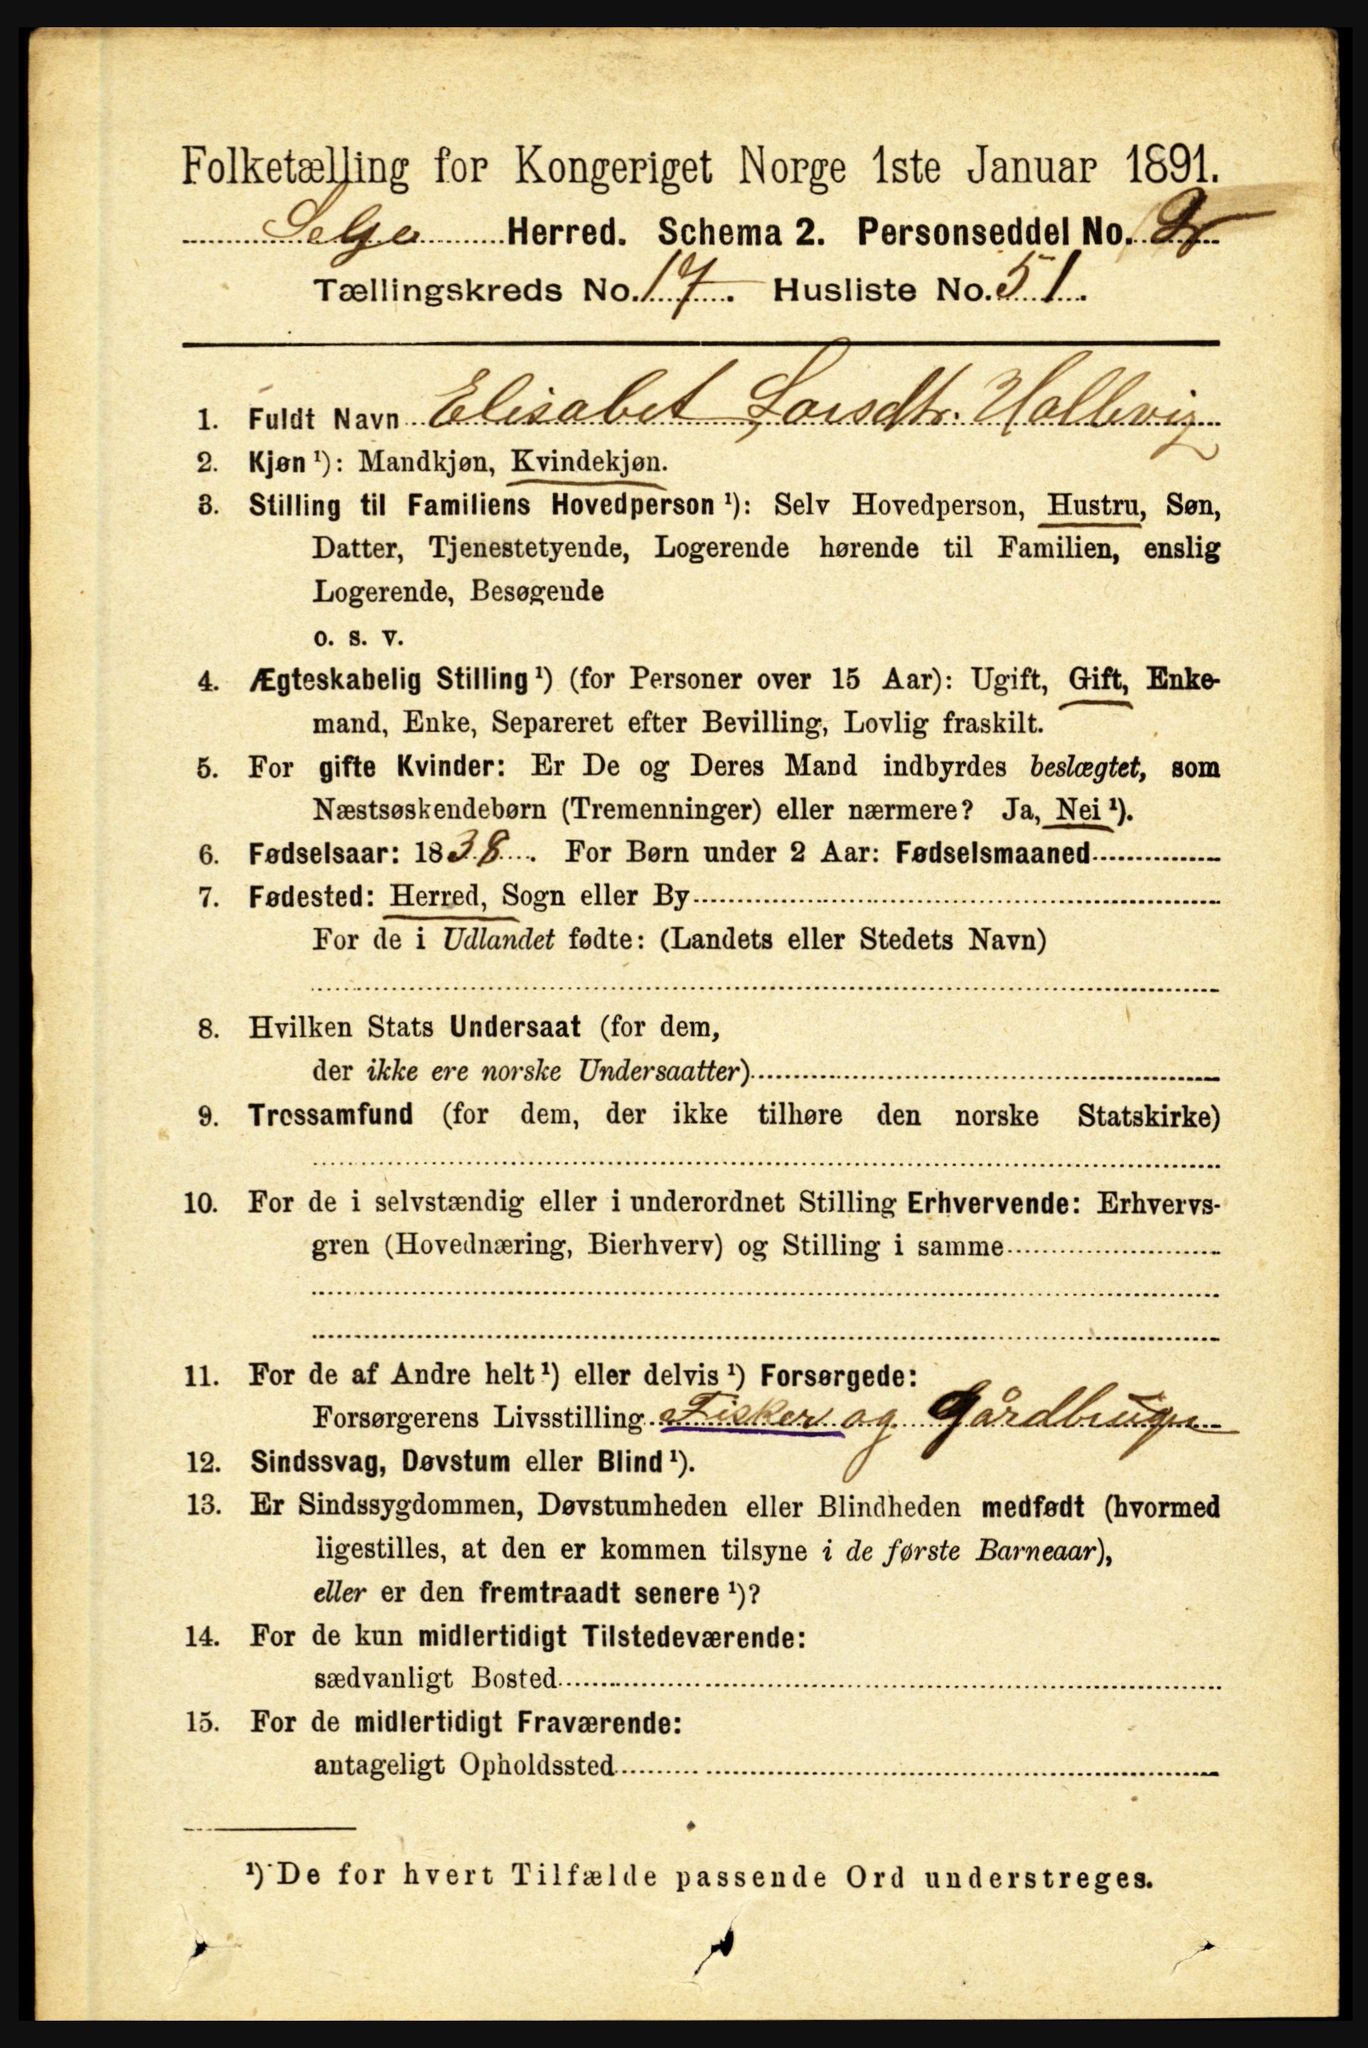 Folketælling for Kongeriget Norge 1ste Januar 1891.
Selje Herred. Schema 2. Personseddel No. 2
Tællingskreds No. 17. Husliste No. 51.
1. Fuldt Navn Elisabet Larsdtr. Hallevig
2. Kjøn ¹): Mandkjøn, Kvindekjøn.
3. Stilling til Familiens Hovedperson ¹): Selv Hovedperson, Hustru, Søn,
Datter, Tjenestetyende, Logerende hørende til Familien, enslig
Logerende, Besøgende
o. s. v.
4. Ægteskabelig Stilling ¹) (for Personer over 15 Aar): Ugift, Gift, Enke-
mand, Enke, Separeret efter Bevilling, Lovlig fraskilt.
5. For gifte Kvinder: Er De og Deres Mand indbyrdes beslægtet, som
Næstsøskendebørn (Tremenninger) eller nærmere? Ja, Nei ¹).
6. Fødselsaar: 1838. For Børn under 2 Aar: Fødselsmaaned
7. Fødested: Herred, Sogn eller By
For de i Udlandet fødte: (Landets eller Stedets Navn)
8. Hvilken Stats Undersaat (for dem,
der ikke ere norske Undersaatter)
9. Trossamfund (for dem, der ikke tilhøre den norske Statskirke)
10. For de i selvstændig eller i underordnet Stilling Erhvervende: Erhvervs-
gren (Hovednæring, Bierhverv) og Stilling i samme
11. For de af Andre helt ¹) eller delvis ¹) Forsørgede:
Forsørgerens Livsstilling Fisker og Gårdbruger
12. Sindssvag, Døvstum eller Blind ¹).
13. Er Sindssygdommen, Døvstumheden eller Blindheden medfødt (hvormed
ligestilles, at den er kommen tilsyne i de første Barneaar),
eller er den fremtraadt senere ¹)?
14. For de kun midlertidigt Tilstedeværende:
sædvanligt Bosted
15. For de midlertidigt Fraværende:
antageligt Opholdssted
¹) De for hvert Tilfælde passende Ord understreges.